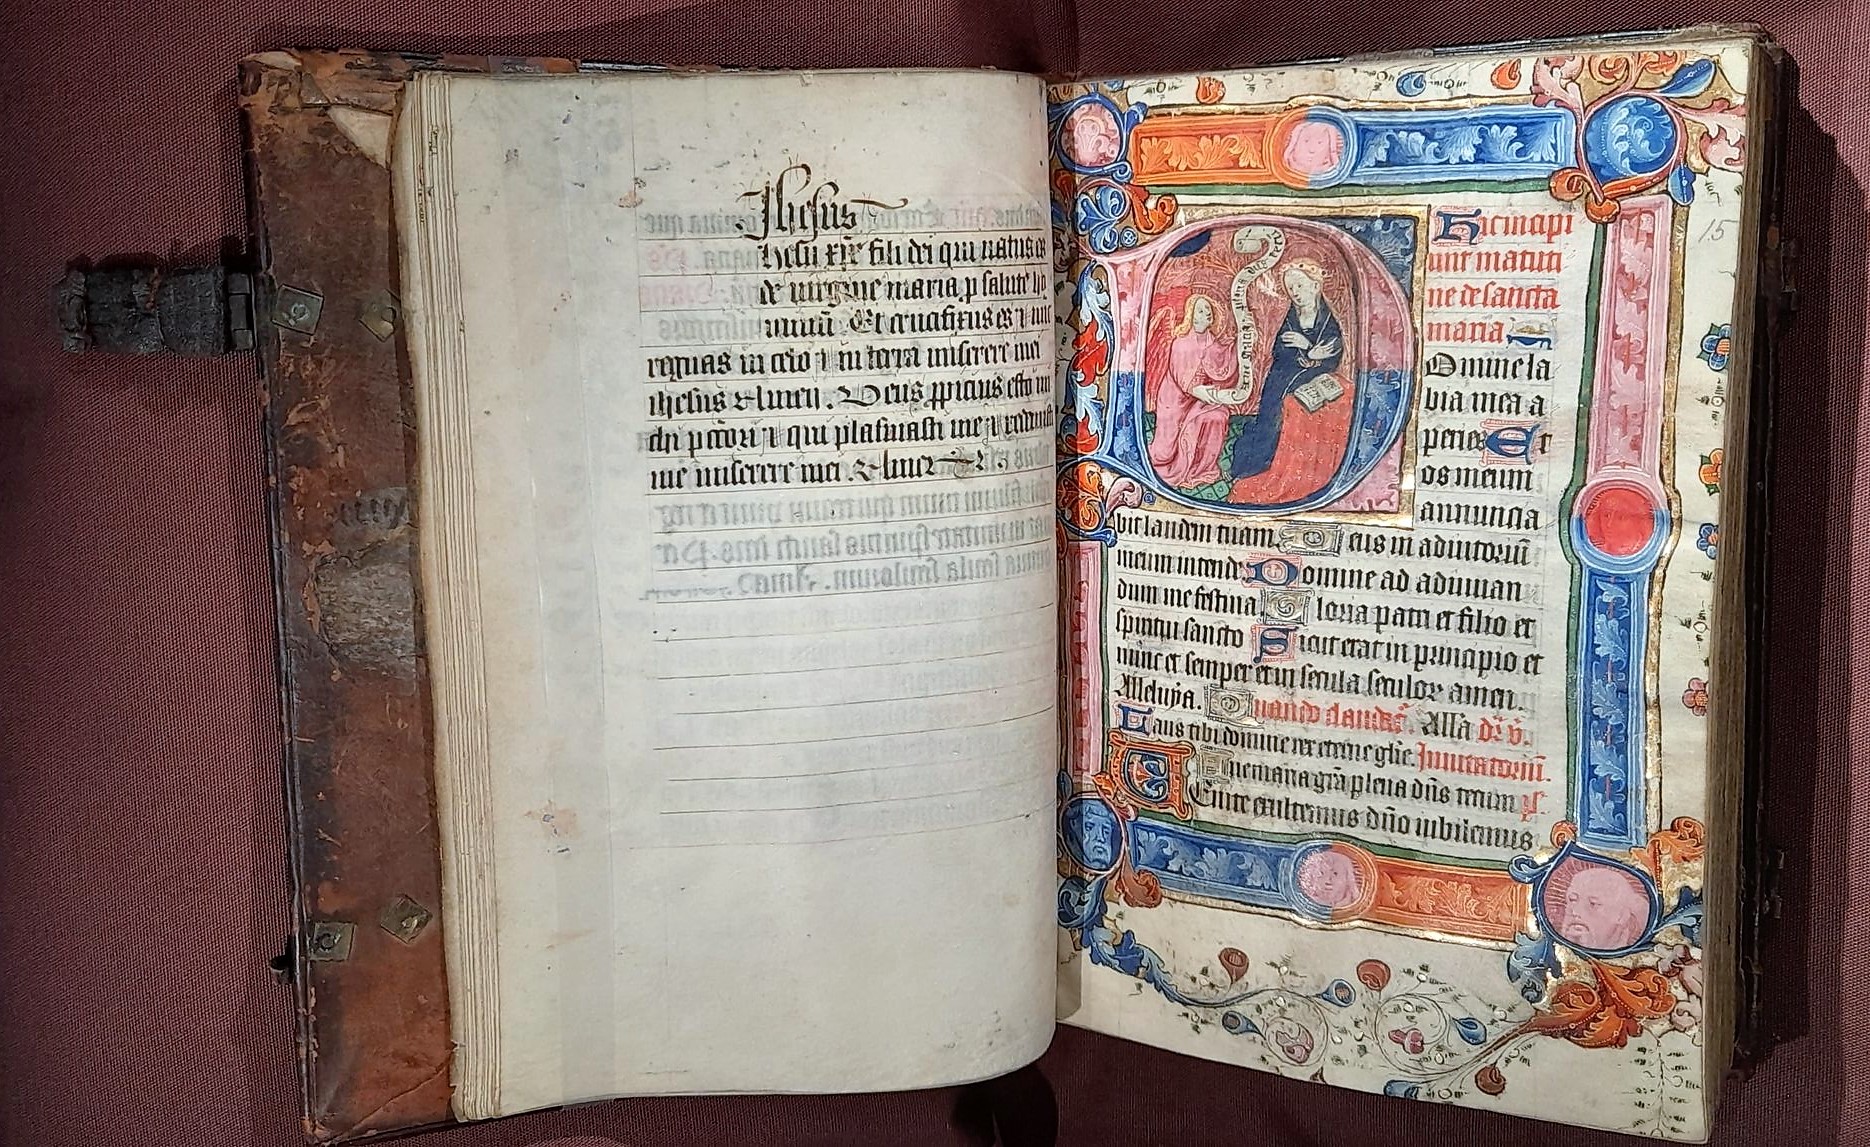 Jhesus
Ihesu xpe fili dei qui natus es
de virgine maria p salute ho
minū Et crucifixus es ⁊ nūc
regnas in celo ⁊ in terra miserere mei
ihesus
Deus ppicius esto mi
chi pctori ⁊ qui plasmasti me ⁊
me miserere mei
15
Hic incipi
unt matuti
ne de sancta
maria
Domine la
bia mea a
peries Et
os meum
annuncia
bit laudem tuam Deus in adiutoriū
meum intende Domine ad adiuuan
dum me festina Gloria patri et filio et
spiritui sancto Sicut erat in principio et
nunc et semper et in secula seculoꝝ amen.
Alleluya. Quando Alla
Laus tibi domine rex eterne glīe. Inuitatoriū.
Aue maria grā plena dn̄s tecum ps
Uenite exultemus dn̄o iubilemus